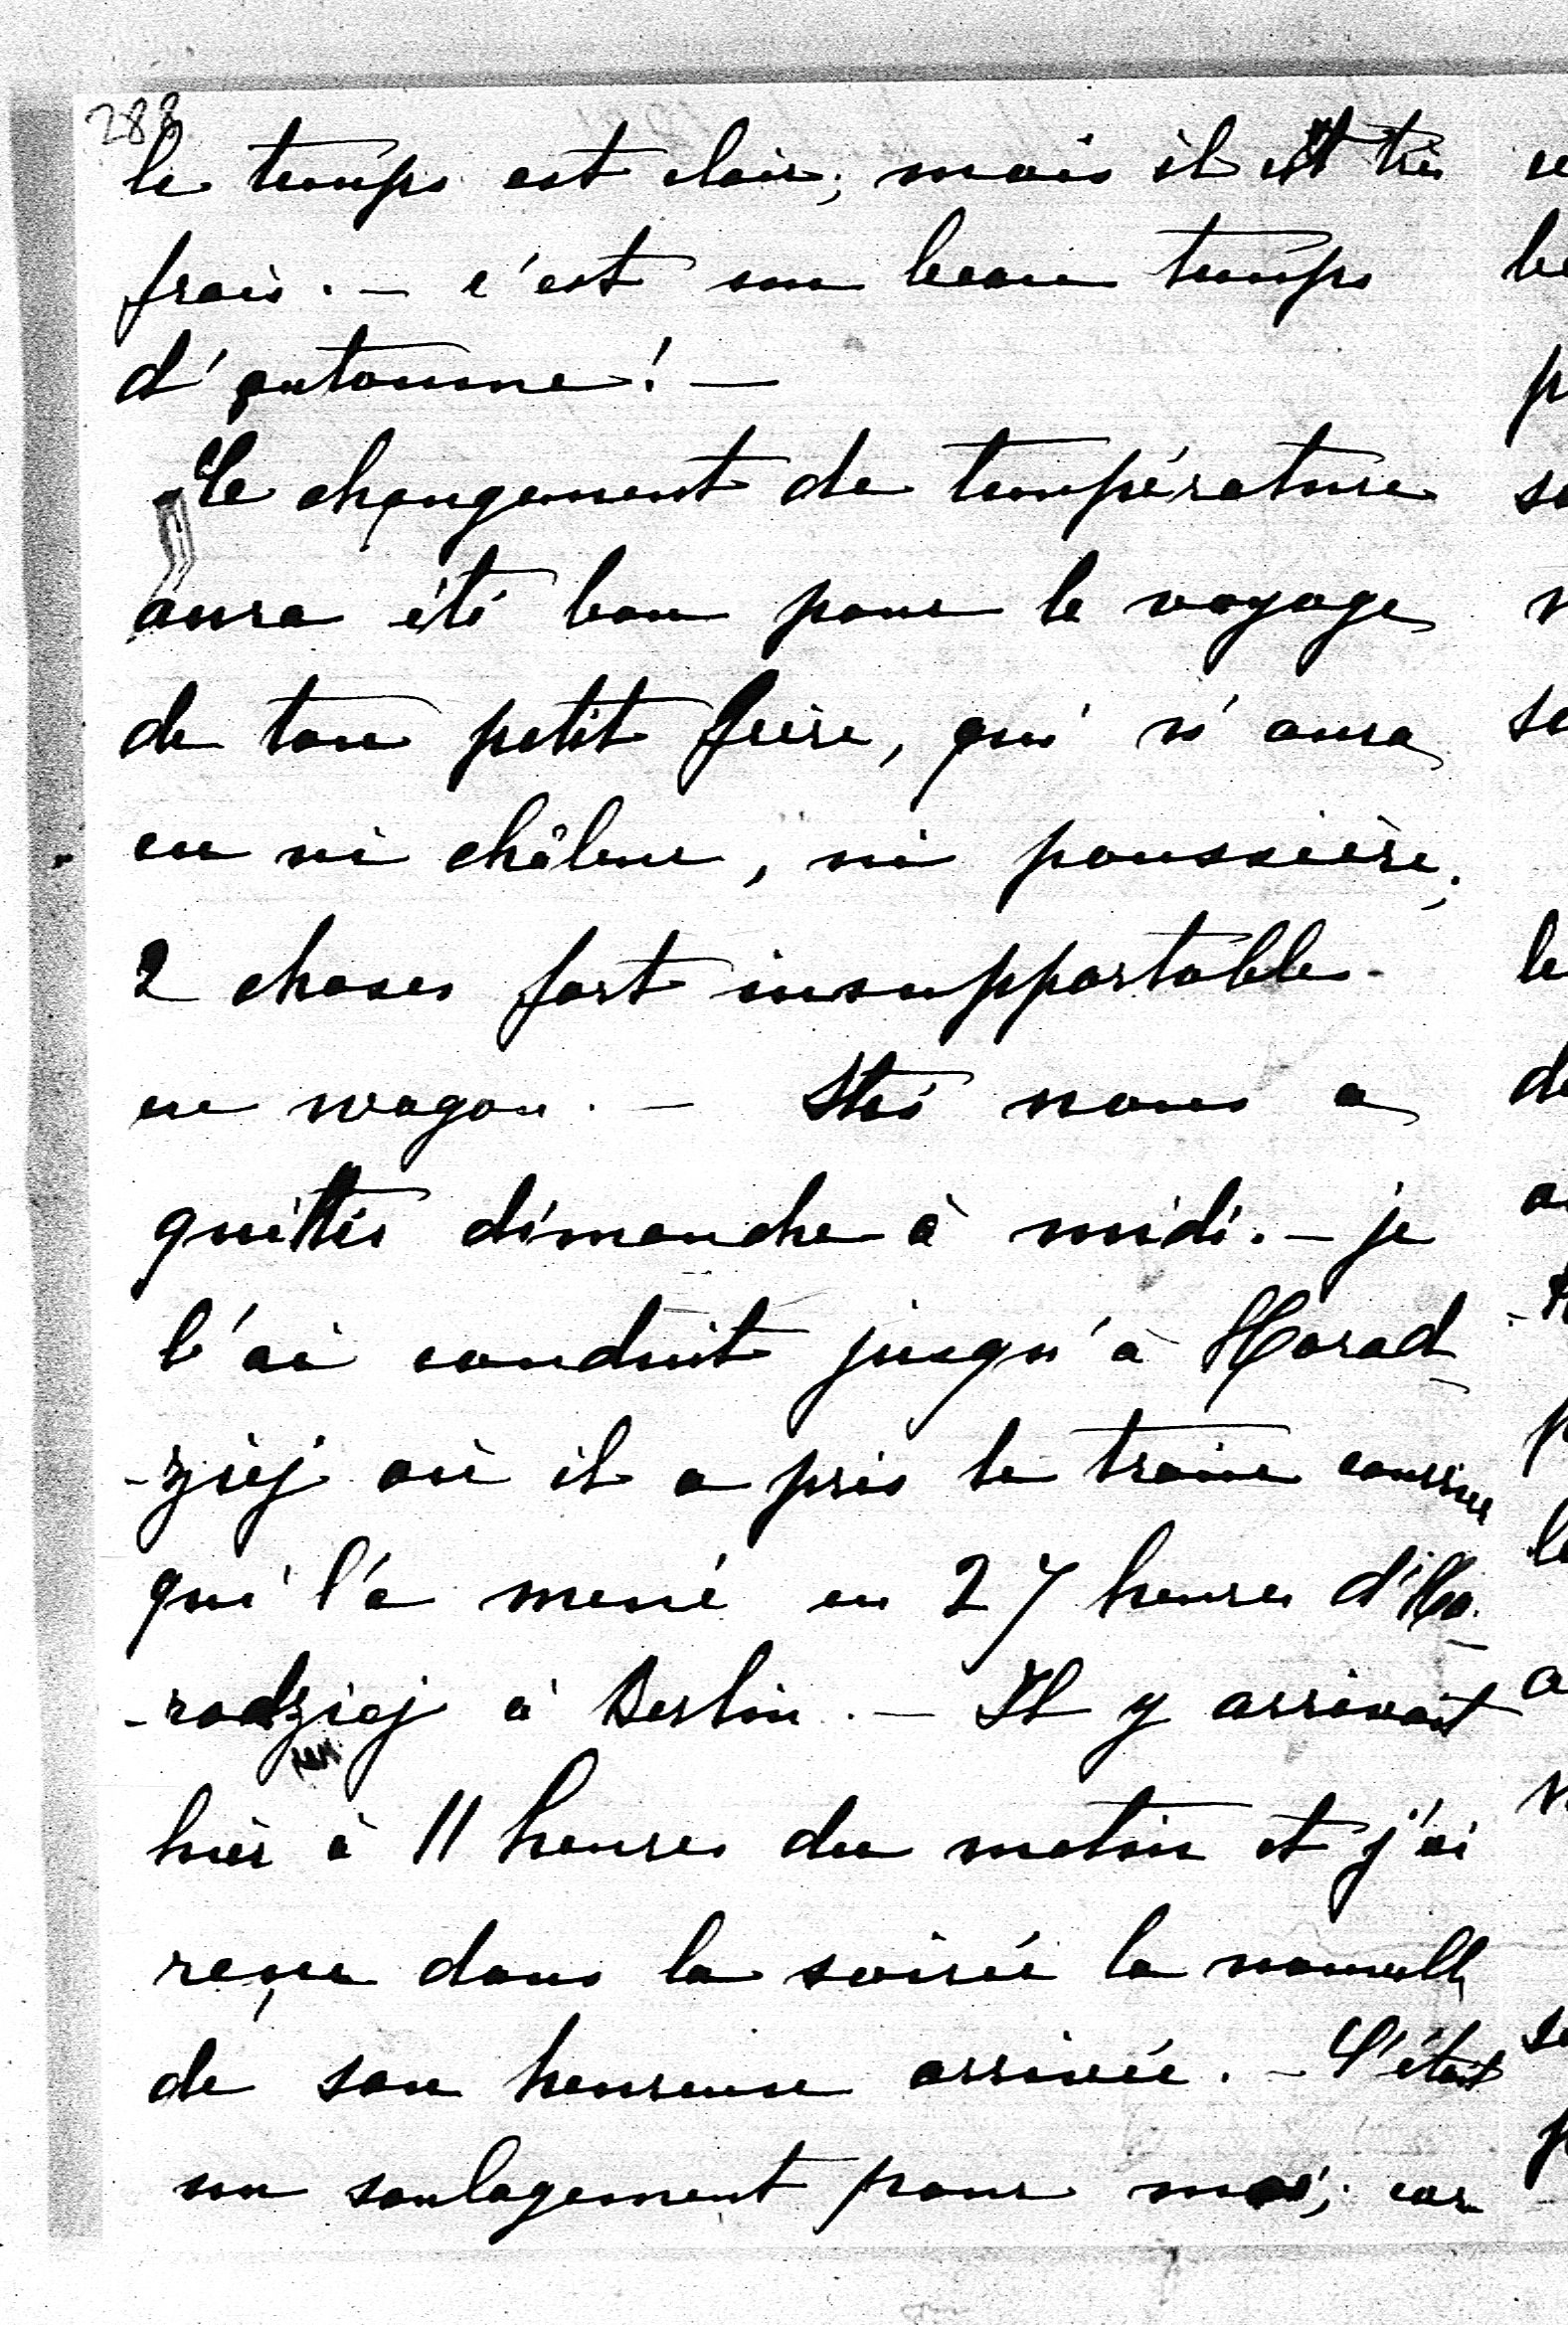 288
le temps est clair; mais il est très
frais. — c'est un beau temps
d'automne! —
Le changement de température
aura été bon pour le voyage
de ton petit frère, qui n'aura
eu ni châleur, ni poussière;
2 choses fort insupportables
en wagon. — Staś nous a
quittés dimanche à midi. — je
l'ai conduit jusqu'à Horod
-ziej où il a pris le train courrier
qui l'a mené en 27 heures d'Ho
-rodziej à Berlin. — Il y arrivait
hier à 11 heures du matin et j'ai
reçu dans la soirée la nouvelle
de son heureuse arrivée. — C'était
un soulagement pour moi; car